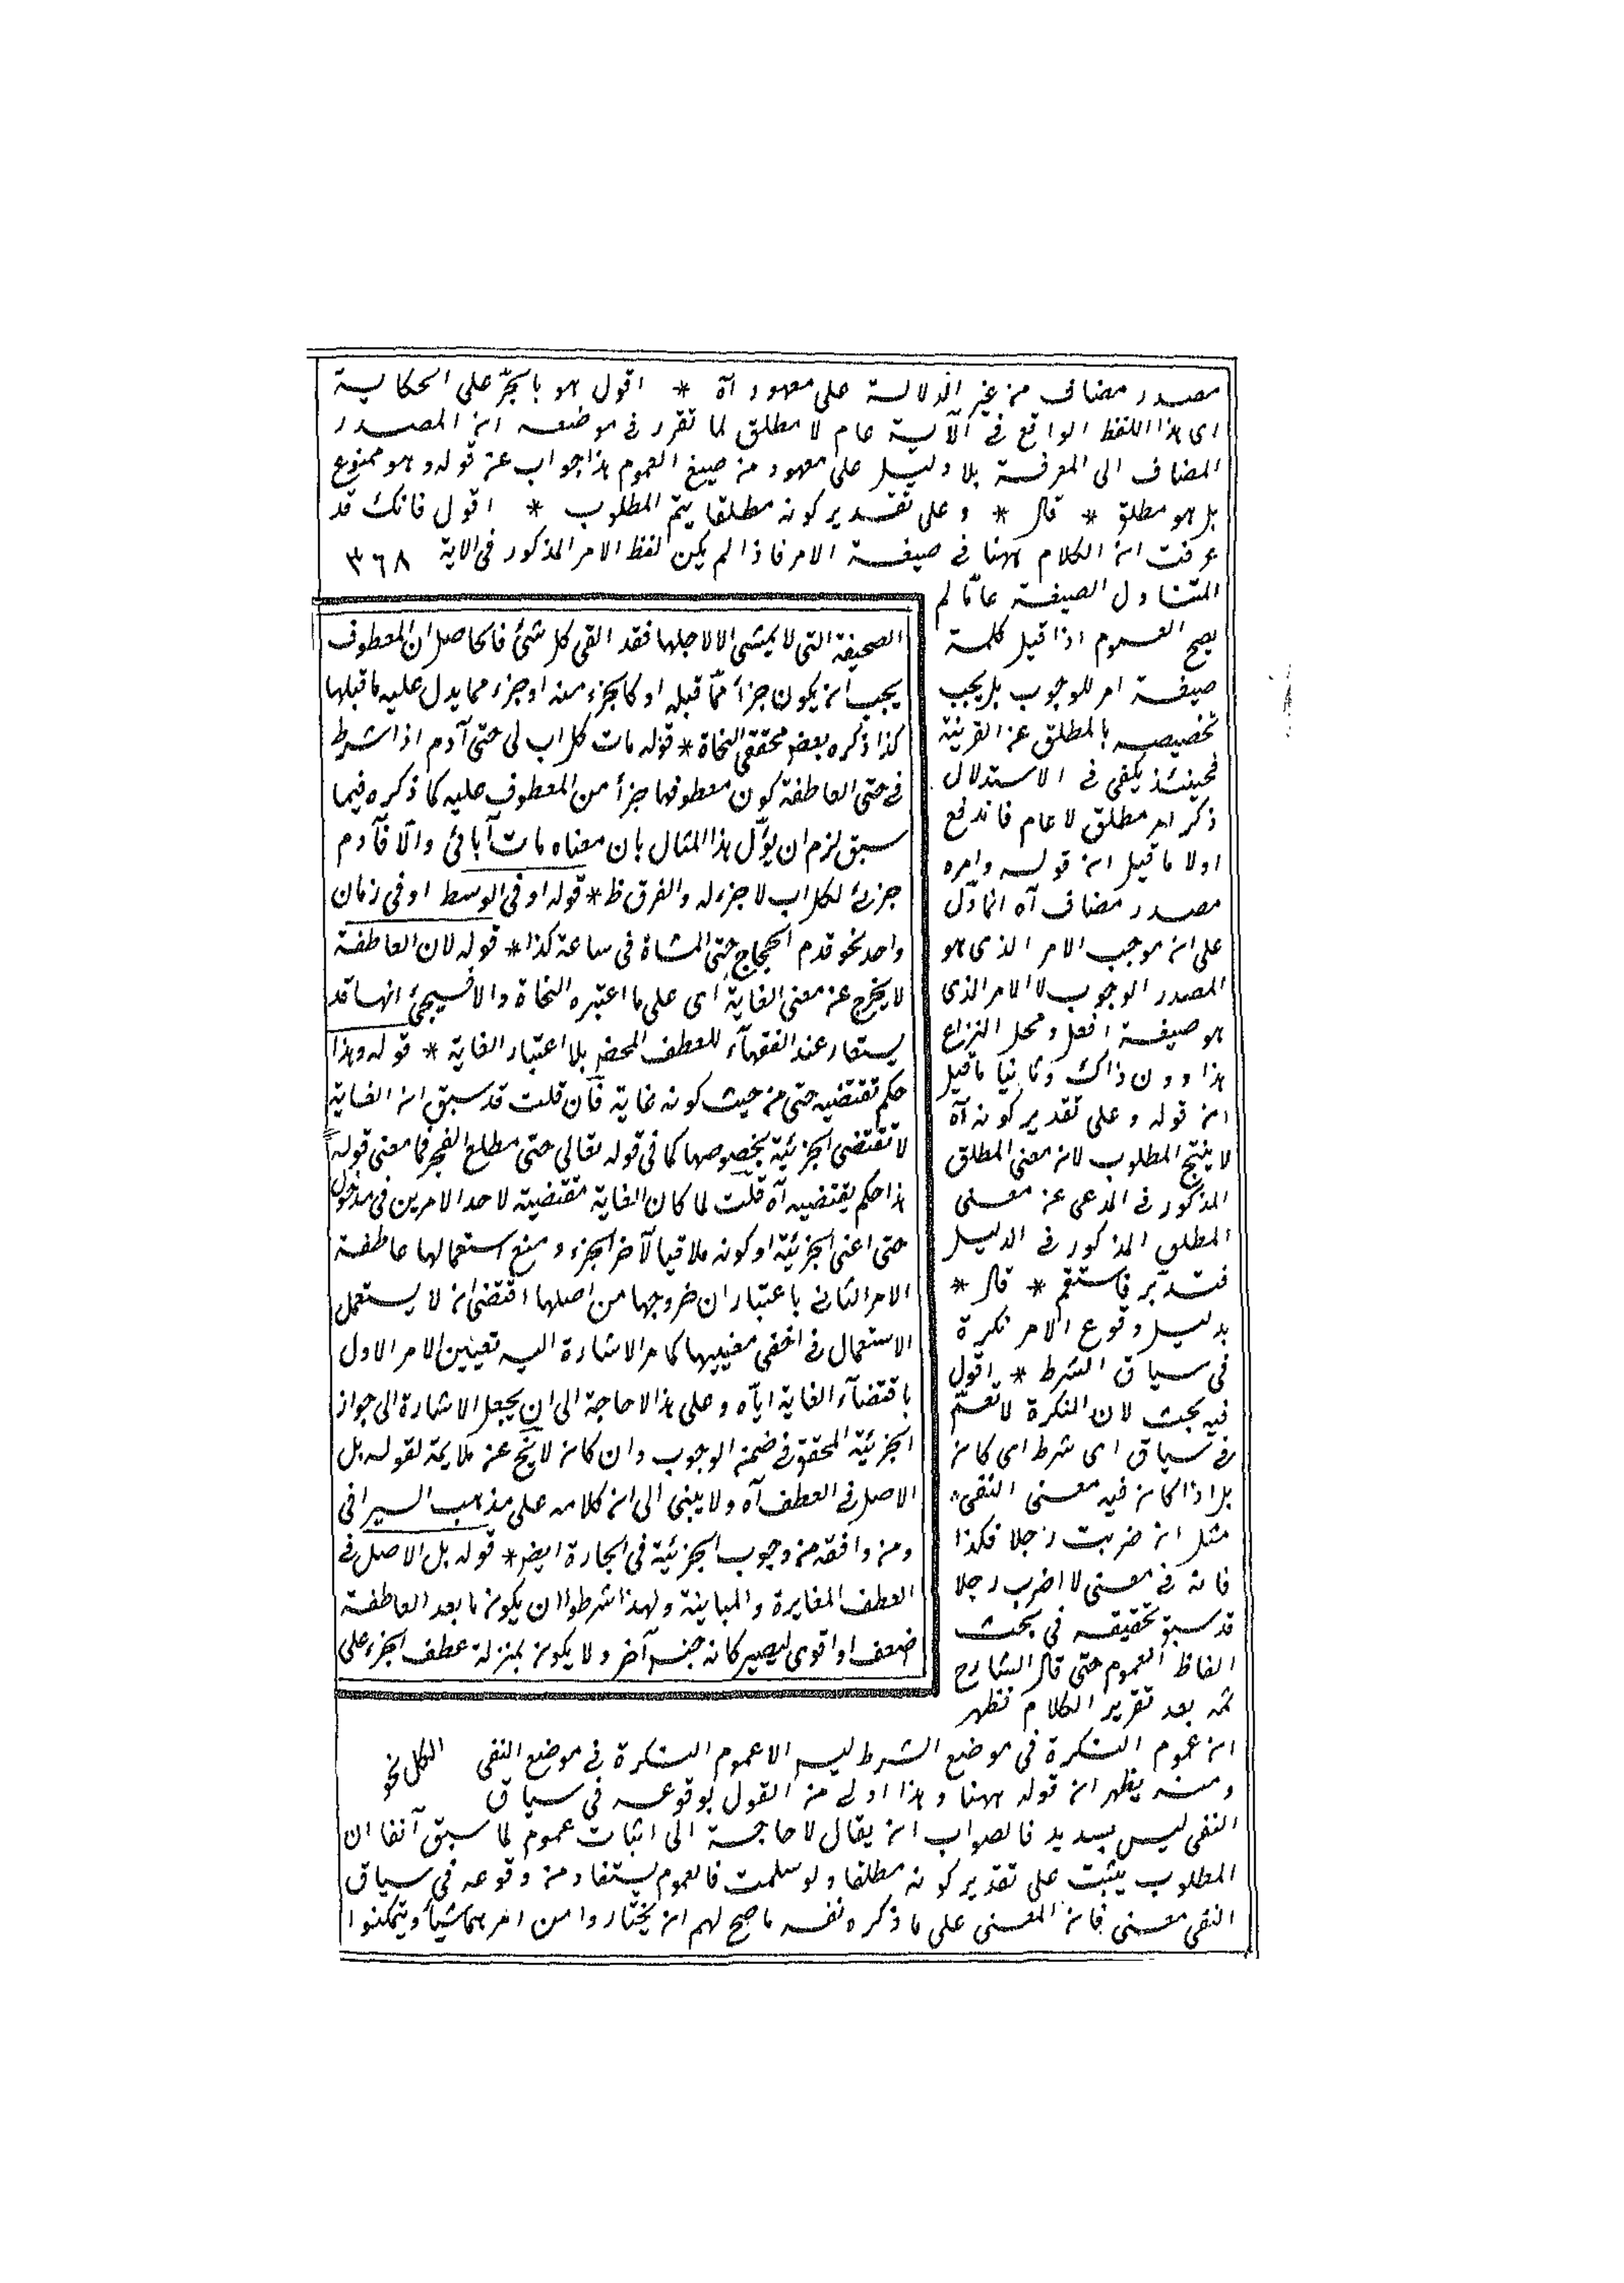 مصدر مضاف من غير الدلالة على معهود آه * اقول هو بالجرّ على الحكاية
اى هذا اللفظ الواقع فى الآية عام لا مطلق لما تقرر فى موضعه ان المصدر
المضاف الى المعرفة بلا دليل على معهود من صيغ العموم هذا جواب عن قوله وهو ممنوع
بل هو مطلق * قال * وعلى تقدير كونه مطلقا يتم المطلوب * اقول فانك قد
عرفت ان الكلام ههنا فى صيغة الامر فاذا لم يكن لفظ الامر المذكور فى الاية ٣٦٨
المتناول الصيغة عامّا لم
يصح العموم اذا قيل كلمة
صيغة امر للوجوب بل يجب
تخصيصه بالمطلق عن القرينة
فحينئذ يكفى فى الاستدلال
ذكر امر مطلق لا عام فاندفع
اولا ما قيل ان قوله وامره
مصدر مضاف آه انما دلّ
على ان موجب الامر الذى هو
المصدر الوجوب لا الامر الذى
هو صيغة افعل ومحل النزاع
هذا دون ذاك وثانيا ما قيل
ان قوله وعلى تقدير كونه آه
لا ينتج المطلوب لان معنى المطلق
المذكور فى المدعى عن معنى
المطلق المذكور فى الدليل
فتدبّر فاستقم * قال *
بدليل وقوع الامر نكرة
فى سياق الشرط * اقول
فيه بحث لان النكرة لا تعمّ
فى سياق اى شرط اى كان
بل اذا كان فيه معنى النفى
مثل ان ضربت رجلا فكذا
فانه فى معنى لا اضرب رجلا
قد سبق تحقيقه فى بحث
الفاظ العموم حتى قال الشارح
ثمه بعد تقرير الكلام فظهر
ان عموم النكرة فى موضع الشرط ليس الا عموم النكرة فى موضع النفى
ومنه يظهر ان قوله ههنا وهذا اولى من القول بوقوعه فى سياق
النفى ليس بسديد فالصواب ان يقال لا حاجة الى اثبات عموم لما سبق آنفا ان
المطلوب يثبت على تقدير كونه مطلقا ولو سلمت فالعموم يستفاد من وقوعه فى سياق
النفى معنى فان المعنى على ما ذكره نفسه ما صح لهم ان يختاروا من امرهما شيأ ويتمكنوا
الصحيفة التى لا يمشى الا لاجلها فقد القى كل شئ فالحاصل ان المعطوف
يجب ان يكون جزأ ممّا قبله او كالجزء منه او جزء مما يدل عليه ما قبلها
كذا ذكره بعض محققى النحاة * قوله مات كل اب لى حتى آدم اذا شرط
فى حتى العاطفة كون معطوفها جزأ من المعطوف عليه كما ذكره فيما
سبق لزم ان يؤّل هذا المثال بان معناه مات آبائى والّا فآدم
جزئى لكل اب لا جزء له والفرق ظ * قوله او فى الوسط او فى زمان
واحد نحو قدم الحجاج حتى المشاة فى ساعة كذا * قوله لان العاطفة
لا يخرج عن معنى الغاية اى على ما اعتبره النحاة والا فسيجئ انها قد
يستعار عند الفقهآء للعطف المحض بلا اعتبار الغاية * قوله وهذا
حكم تقتضيه حتى من حيث كونه غاية فآن قلت قد سبق ان الغاية
لا تقتضى الجزئيّة بخصوصها كما فى قوله تعالى حتى مطلع الفجر فما معنى قوله
هذا حكم يقتضيه آه قلت لما كان الغاية مقتضية لاحد الامرين فى مدخول
حتى اعنى الجزئيّة او كونه ملاقيا لآخر الجزء ومنع استعمالها عاطفة
الامر الثانى باعتبار ان خروجها من اصلها اقتضى ان لا يستعمل
الاستعمال فى اخفى معنييها كما مر الاشارة اليه تعيين الامر الاول
باقتضآء الغاية ايّاه وعلى هذا لا حاجة الى ان يجعل الاشارة الى جواز
الجزئيّة المحقق فى ضمن الوجوب وان كان لا يخ عن ملايمة لقوله بل
الاصل فى العطف آه ولا يبنى الى ان كلامه على مذهب السيرافى
ومن وافقه من وجوب الجزئيّة فى الجارة ايض * قوله بل الاصل فى
العطف المغايرة والمباينة ولهذا شرطوا ان يكون ما بعد العاطفة
اضعف او اقوى ليصير كانه جنس آخر ولا يكون بمنزلة عطف الجزء على
الكل نحو